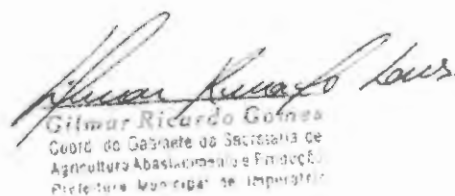 Gilmar Ricardo Gomes
Coord. do Gabinete da Secretaria de
Agricultura Abastecimento e Produção
Prefeitura Municipal de Imperatriz